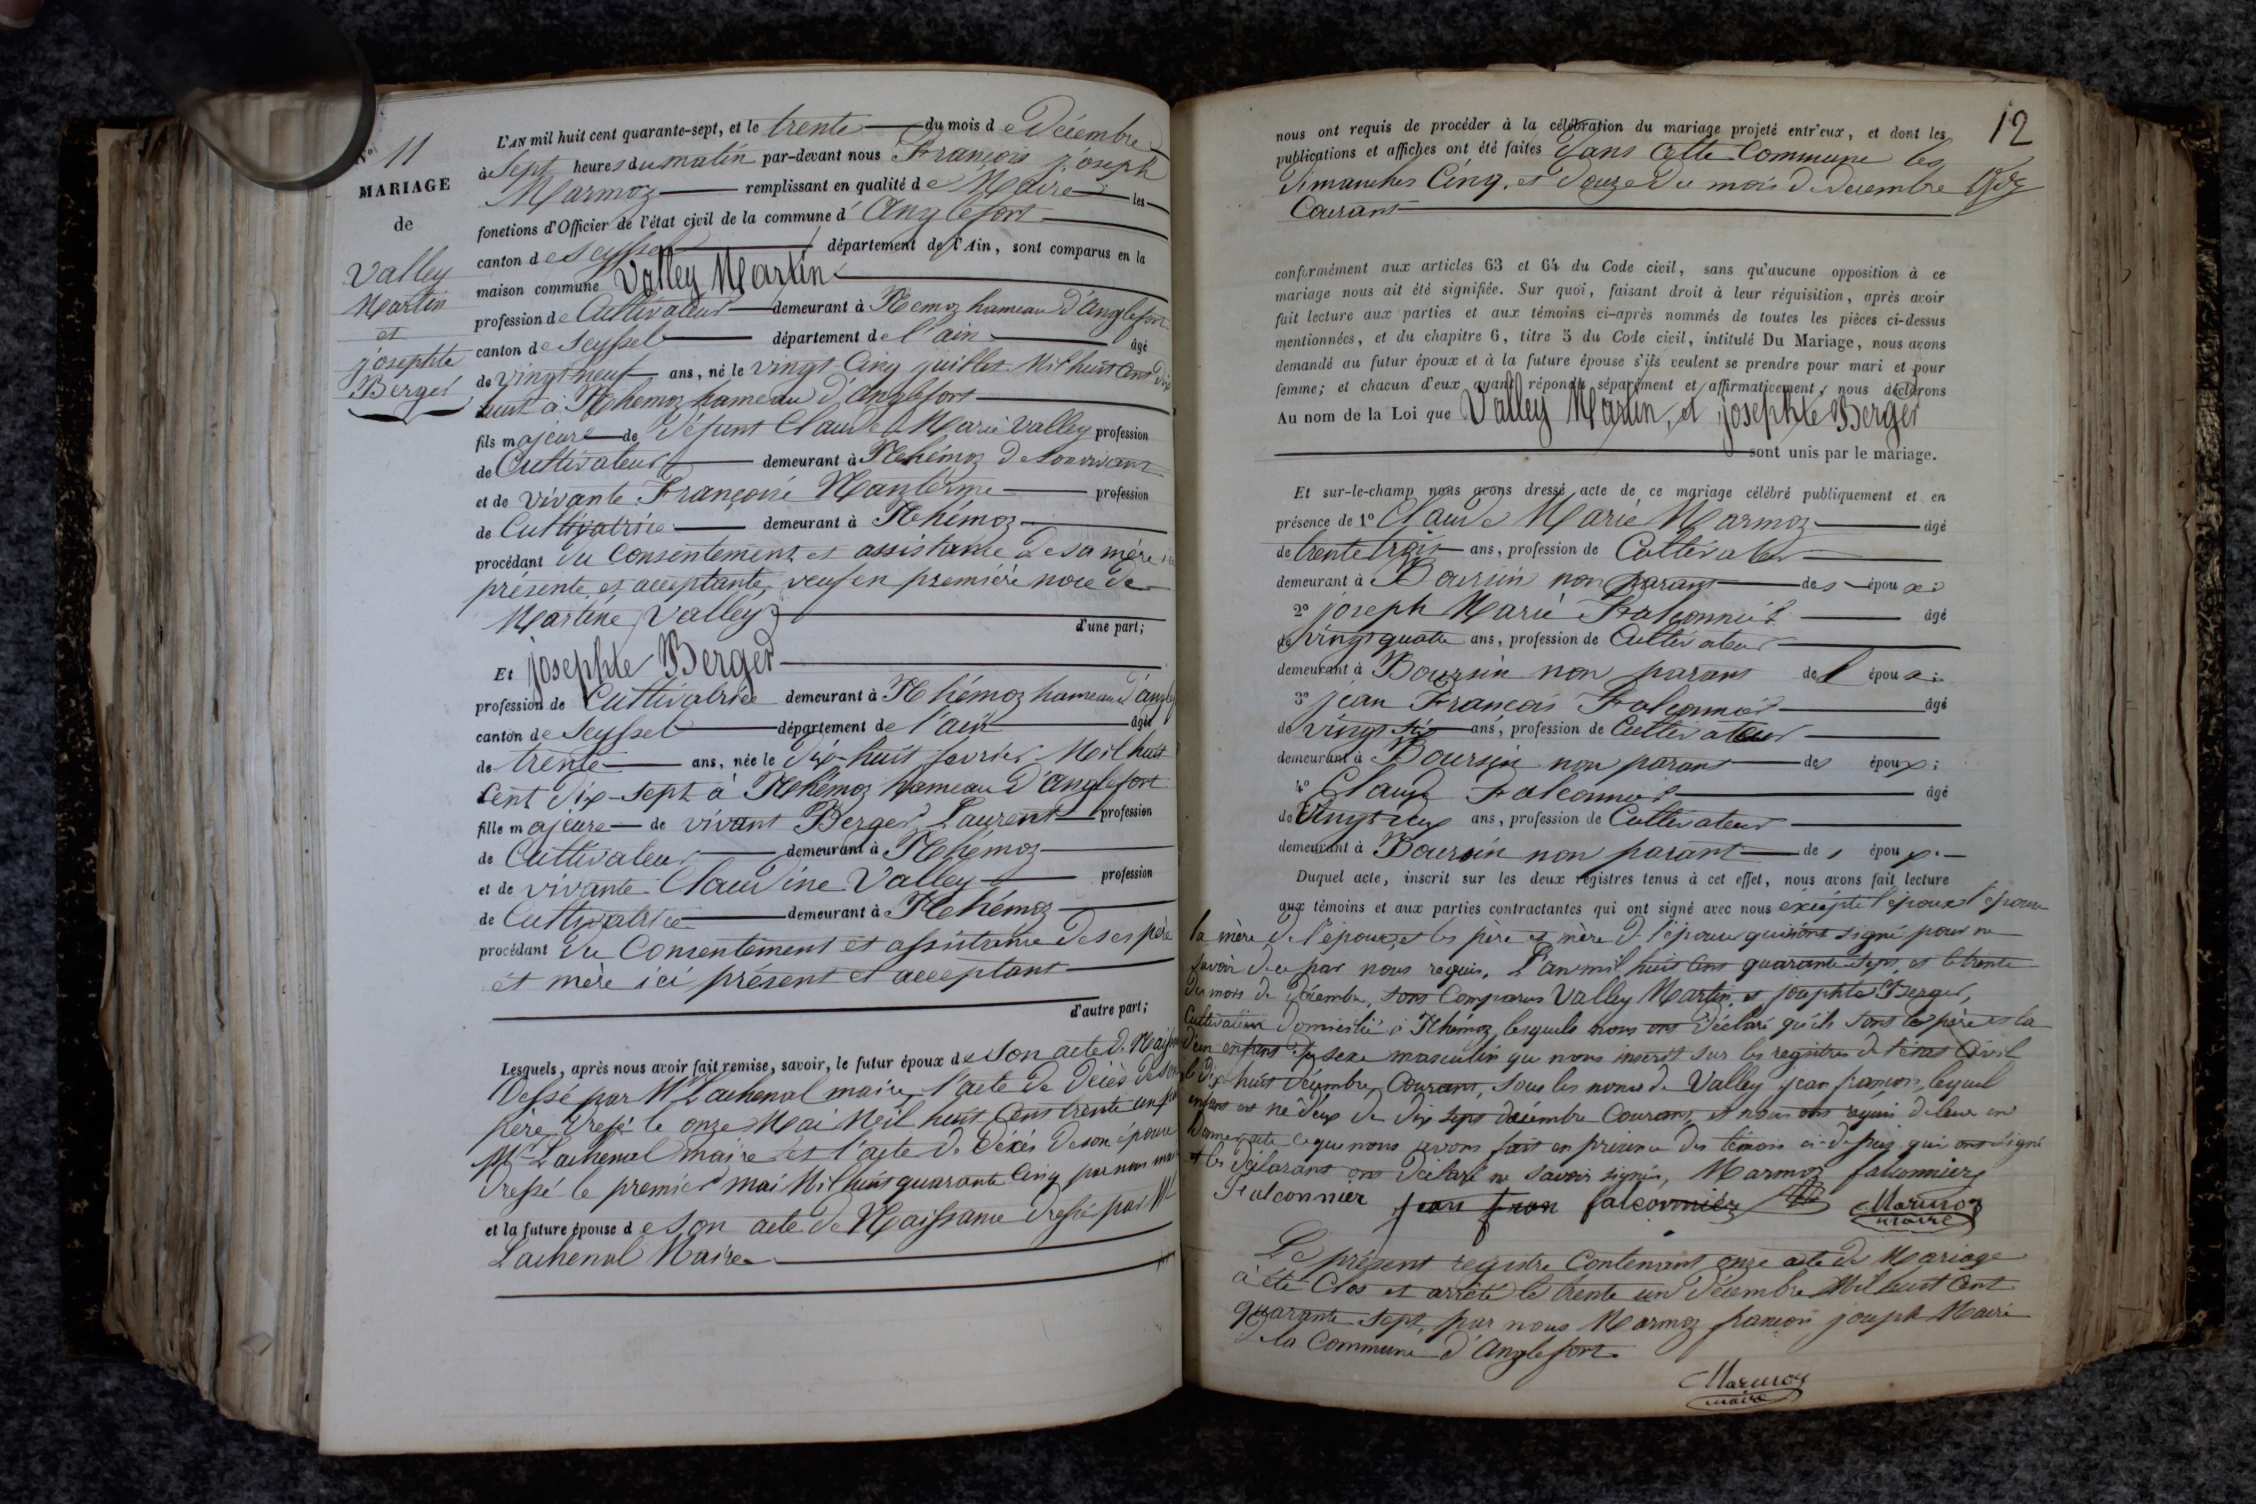 N° 11
MARIAGE
de
Valley
Martin
et
josephte
Berger
L'AN mil huit cent quarante-sept, et le trente du mois de Décembre
à Sept heures du matin par-devant nous François joseph
Marmoz remplissant en qualité de Maire les
fonctions d'Officier de l'état civil de la commune d'Anglefort
canton de Seyssel département de l'Ain, sont comparus en la
maison commune Valley Martin
profession de Cultivateur demeurant à Rhemoz hameau d'Anglefort
canton de Seyssel département de l'ain âgé
de vingt neuf ans, né le vingt Cinq juillet Mil huit Cent dix
huit à Rhemoz hameau d'Anglefort
fils majeure de défunt Claude Marie Valley profession
de Cultivateur demeurant à Rhémoz de son vivant
et de vivante Françoise profession
de Cultivatrice demeurant à Rhémoz
procédant du Consentement et assistance de sa mère ici
présente et acceptante, veuf en première noce de
Martine Valley
d'une part;
Et josephte Berger
profession de Cultivatrice demeurant à Rhémoz hameau d'angle
canton de Seyssel département de l'ain âgée
de trente ans, née le dix-huit février Mil huit
Cent dix-sept à Rhémoz hameau d'Anglefort
fille majeure de vivant Berger Laurent profession
de Cultivateur demeurant à Rhémoz
et de vivante Claudine Valley profession
de Cultivatrice demeurant à Rhémoz
procédant du Consentement et assistance de ses père
et mère ici présent et acceptant
d'autre part;
Lesquels, après nous avoir fait remise, savoir, le futur époux de son acte de Naissance
Dressé par Mr Lachenal maire, l'acte de décès de son
père dressé le onze Mai Mil huit Cent trente un par
Mr Lachenal maire et l'acte de décès de son épouse
dressé le premier mai Mil huit quarante Cinq par nous maire
et la future épouse de son acte de Naissance dressé par Mr
Lachenal Maire
12
nous ont requis de procéder à la célébration du mariage projeté entr'eux, et dont les
publications et affiches ont été faites dans cette Commune les
dimanches Cinq et douze du mois de décembre
Courant
conformément aux articles 63 et 64 du Code civil, sans qu'aucune opposition à ce
mariage nous ait été signifiée. Sur quoi, faisant droit à leur réquisition, après avoir
fait lecture aux parties et aux témoins ci-après nommés de toutes les pièces ci-dessus
mentionnées, et du chapitre 6, titre 5 du Code civil, intitulé Du Mariage, nous avons
demandé au futur époux et à la future épouse s'ils veulent se prendre pour mari et pour
femme; et chacun d'eux ayant répondu séparément et affirmativement, nous déclarons
Au nom de la Loi que Valley Martin, et josephte Berger
sont unis par le mariage.
Et sur-le-champ nous avons dressé acte de ce mariage célébré publiquement et en
présence de 1° Claude Marie Marmoz âgé
de trente trois ans, profession de Cultivateur
demeurant à Boursin non parant des époux:
2° joseph Marie Falconnier âgé
de vingt quatre ans, profession de Cultivateur
demeurant à Boursin non parant de l époux:
3° jean François Falconnier âgé
de vingt six ans, profession de Cultivateur
demeurant à Boursin non parant des époux:
4° Claude Falconnier âgé
de vingt deux ans, profession de Cultivateur
demeurant à Boursin non parant des époux.
Duquel acte, inscrit sur les deux registres tenus à cet effet, nous avons fait lecture
aux témoins et aux parties contractantes qui ont signé avec nous excepté l'époux l'épouse
la mère de l'époux, et les père et mère de l'épouse qui n'ont signé pour ne
savoir de ce par nous requis. L'an mil huit cent quarante Sept, et le trente
du mois de décembre, sont Comparus Valley Martin, et josephte Berger,
Cultivateur domicilié à Rhémoz, lesquels nous ont déclaré qu'ils sont le père et la
d'un enfant du sexe masculin que nous inscrit sur les registres de l'état Civil
le dix huit décembre Courant, sous les noms de Valley jean françois, lequel
enfant est né d'eux le dix sept décembre Courant, et nous ont requis de leur en
donner acte ce que nous avons fait en présence des témoins ci-dessus qui ont signé
et les déclarant ont déclaré ne savoir signer, Marmoz falconnier
Falconnier jean fran falconnier Marmoz
maire
Le présent registre Contenant onze acte de Mariage
à été Clos et arrêté le trente un décembre Mil huit Cent
quarante Sept, par nous Marmoz françois joseph Maire
de la Commune d'Anglefort
Marmoz
maire